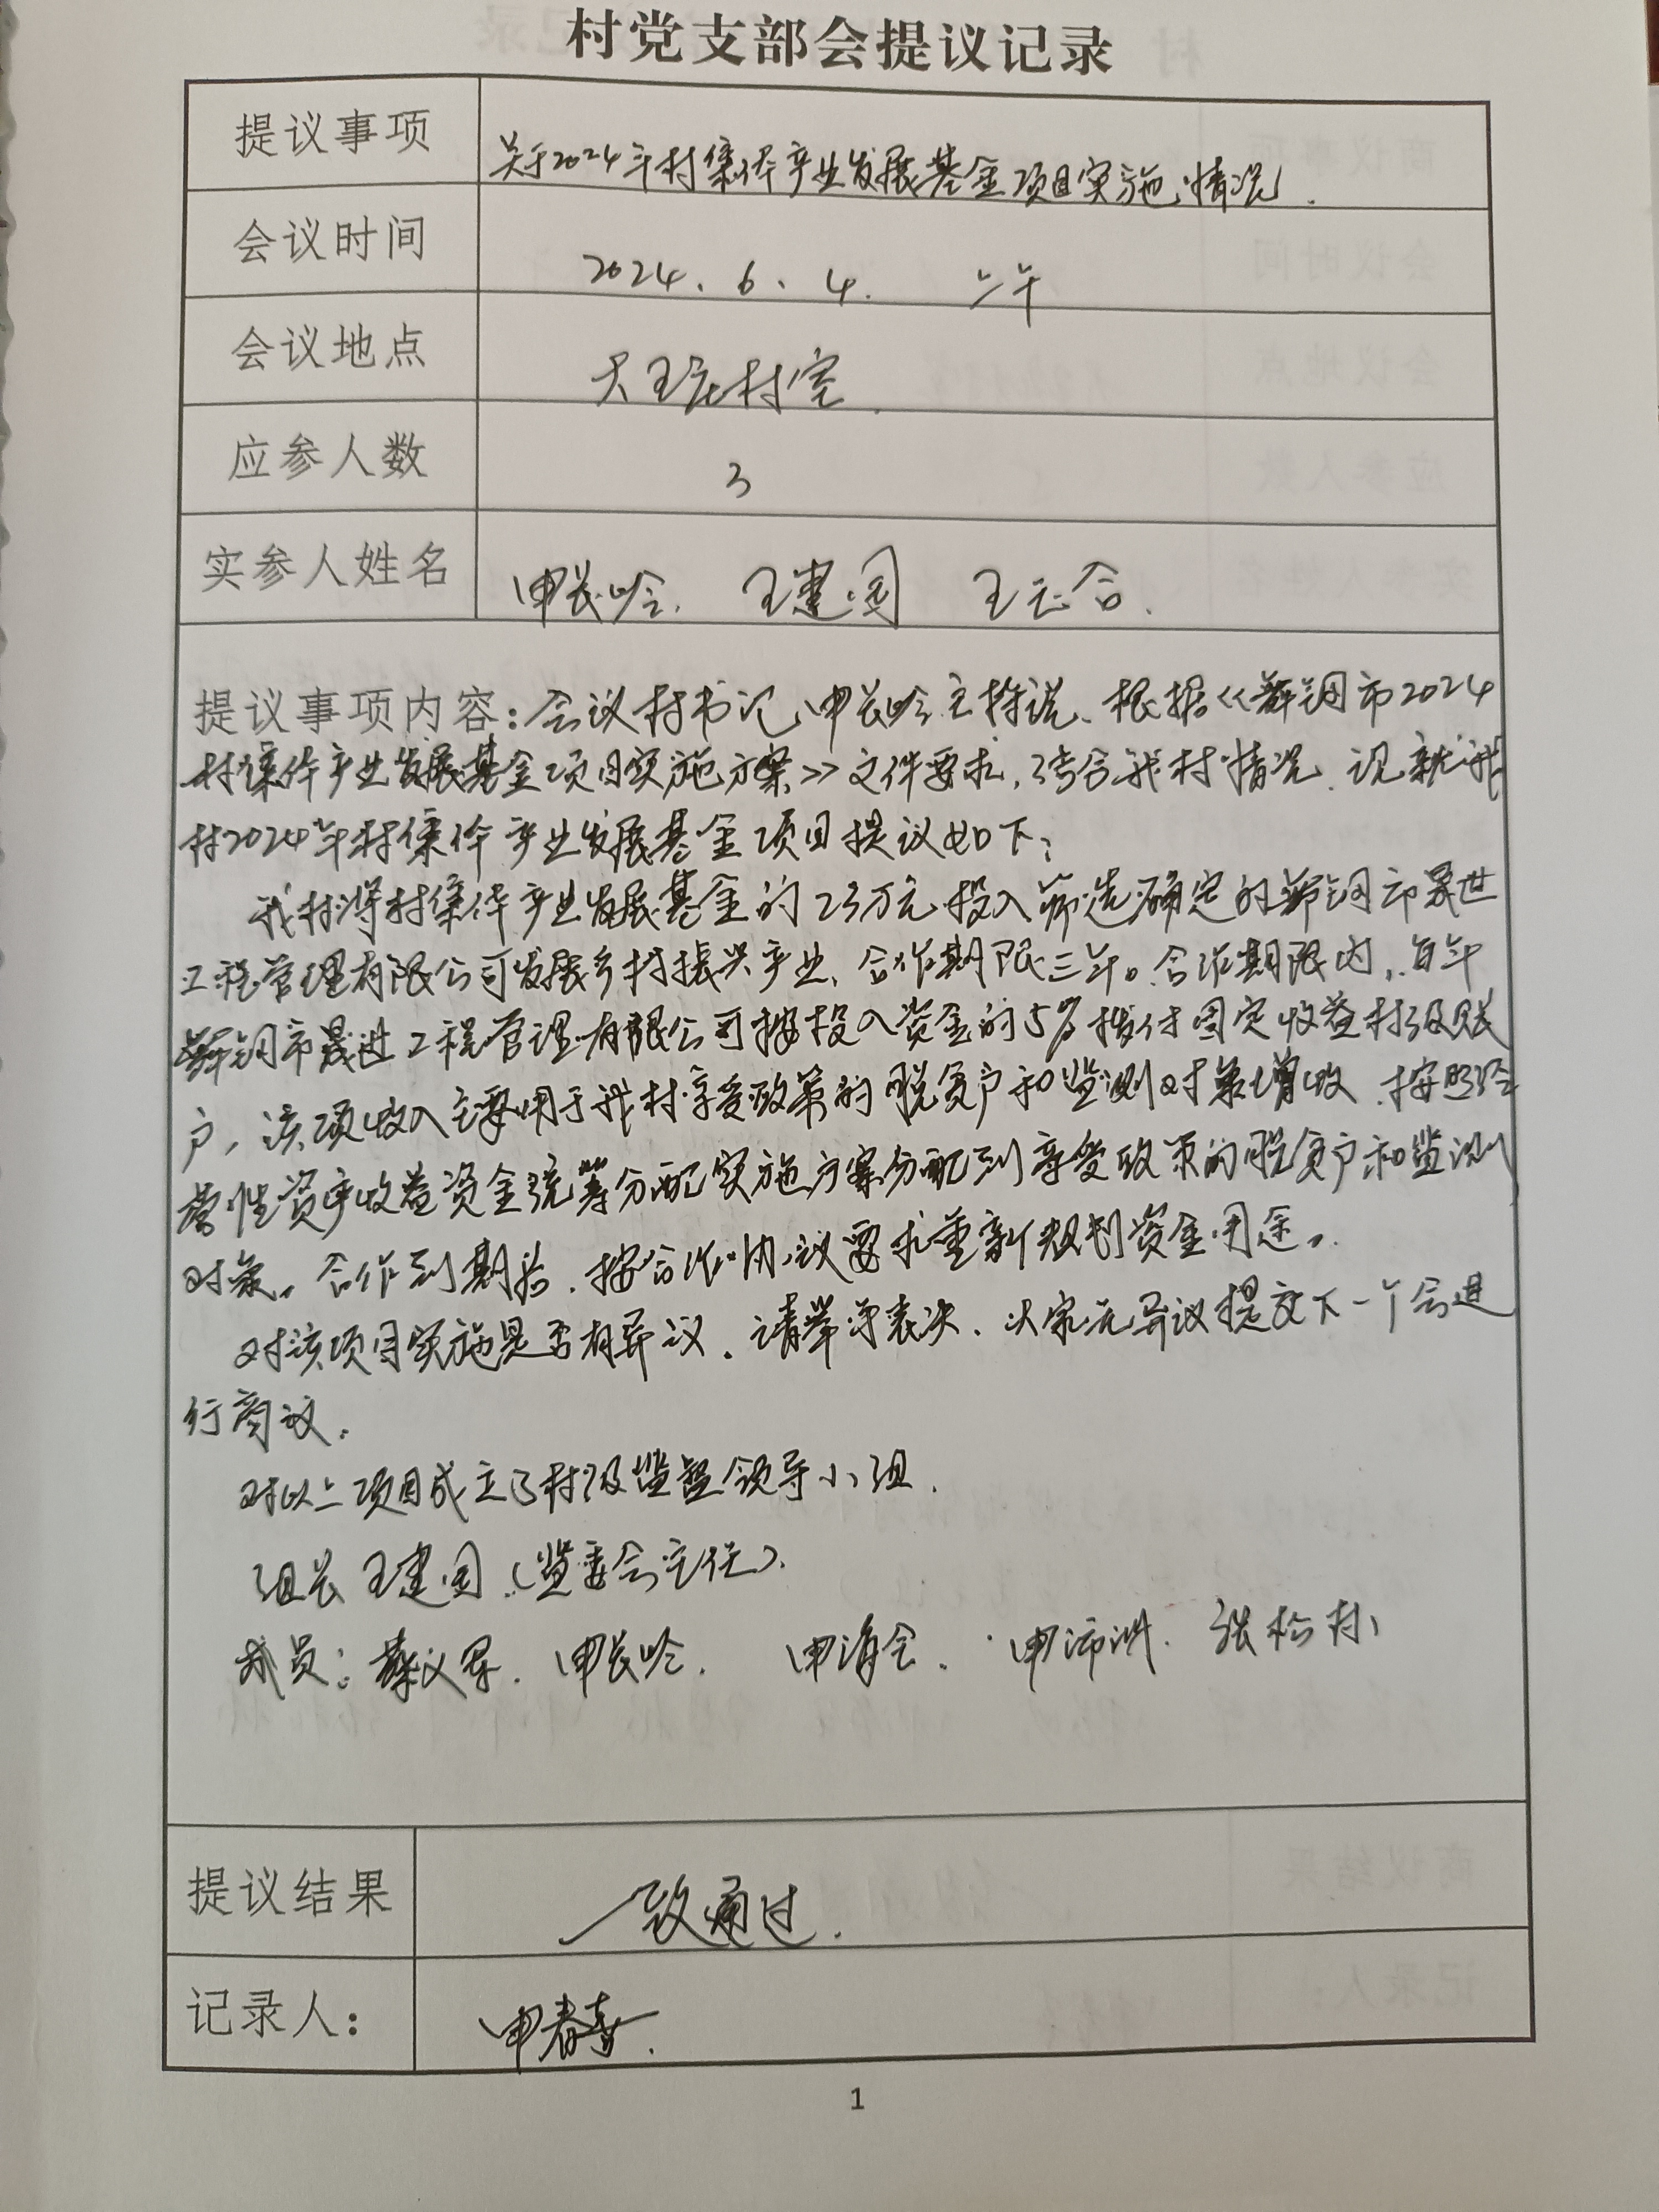 村党支部会提议记录
提议事项 关于2024年村集体产业发展基金项目实施情况.
会议时间 2024.6.4. 上午
会议地点 大王庄村室.
应参人数 3
实参人姓名 申长岭. 王建国 王云合.
提议事项内容:会议村书记申长岭主持说、根据《舞钢市2024
村集体产业发展基金项目实施方案》文件要求,结合我村情况.现就我
村2024年村集体产业发展基金项目提议如下:
我村将村集体产业发展基金的23万元投入筛选确定的舞钢市晟世
工程管理有限公司发展乡村振兴产业、合作期限三年。合作期限内,每年
舞钢市晟进工程管理有限公司按投入资金的5%拨付固定收益村级账
户,该项收入主要用于我村享受政策的脱贫户和监测对象增收.按照经
营性资产收益资金统筹分配实施方案分配到享受政策的脱贫户和监测
对象。合作到期后.按合作协议要求重新规划资金用途。
对该项目实施是否有异议.请举手表决.大家无异议提交下一个会进
行商议.
对以上项目成立了村级监督领导小组.
组长王建国(监委会主任).
成员: 申长岭. 申海会. 张松林
提议结果 一致通过.
记录人: 申春喜.
1